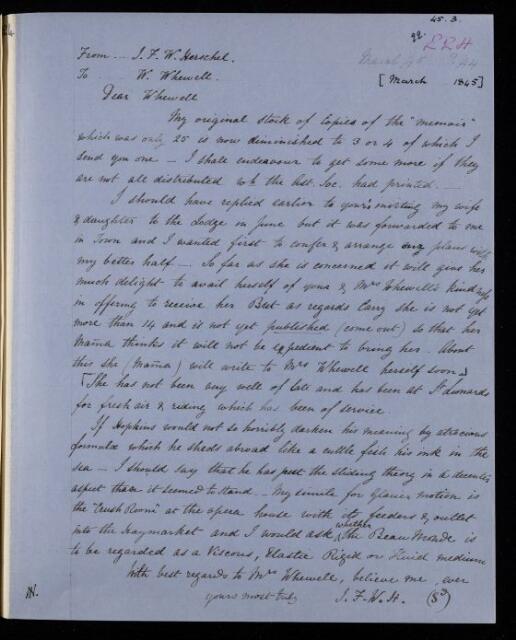 45. 3.
22. L R H
From ... J. F. W. Herschel.
To ... W. Whewell.
[March 1845]
Dear Whewell
My original stock of copies of the "memoir"
which was only 25 is now diminished to 3 or 4 of which I
send you one — I shall endeavour to get some more if they
are not all distributed wh the Ast. Soc. had printed.
I should have replied earlier to yours inviting my wife
& daughter to the Lodge in June but it was forwarded to me
in Town and I wanted first to confer & arrange our plans with
my better half — So far as she is concerned it will give her
much delight to avail herself of your & Mrs Whewell's kindness
in offering to receive her But as regards Carry she is not yet
more than 14 and is not yet published (come out) so that her
Mama thinks it will not be expedient to bring her. About
this she (Mama) will write to Mrs Whewell herself soon.]
[She has not been very well of late and has been at St Leonards
for fresh air & riding which has been of service.
If Hopkins would not so horribly darken his meaning by atracious
formulæ which he sheds abroad like a cuttle fish his ink in the
sea — I should say that he has put the sliding theory in a decenter
aspect than it seemed to stand — My simile for glacier motion is
the "Crush Room" at the opera house with its feeders & outlet
into the Haymarket and I would ask whether the Beau Monde is
to be regarded as a Viscous, Elastic Rigid or Fluid medium
With best regards to Mrs Whewell, believe me ever
yours most truly J. F. W. H. (Sd)